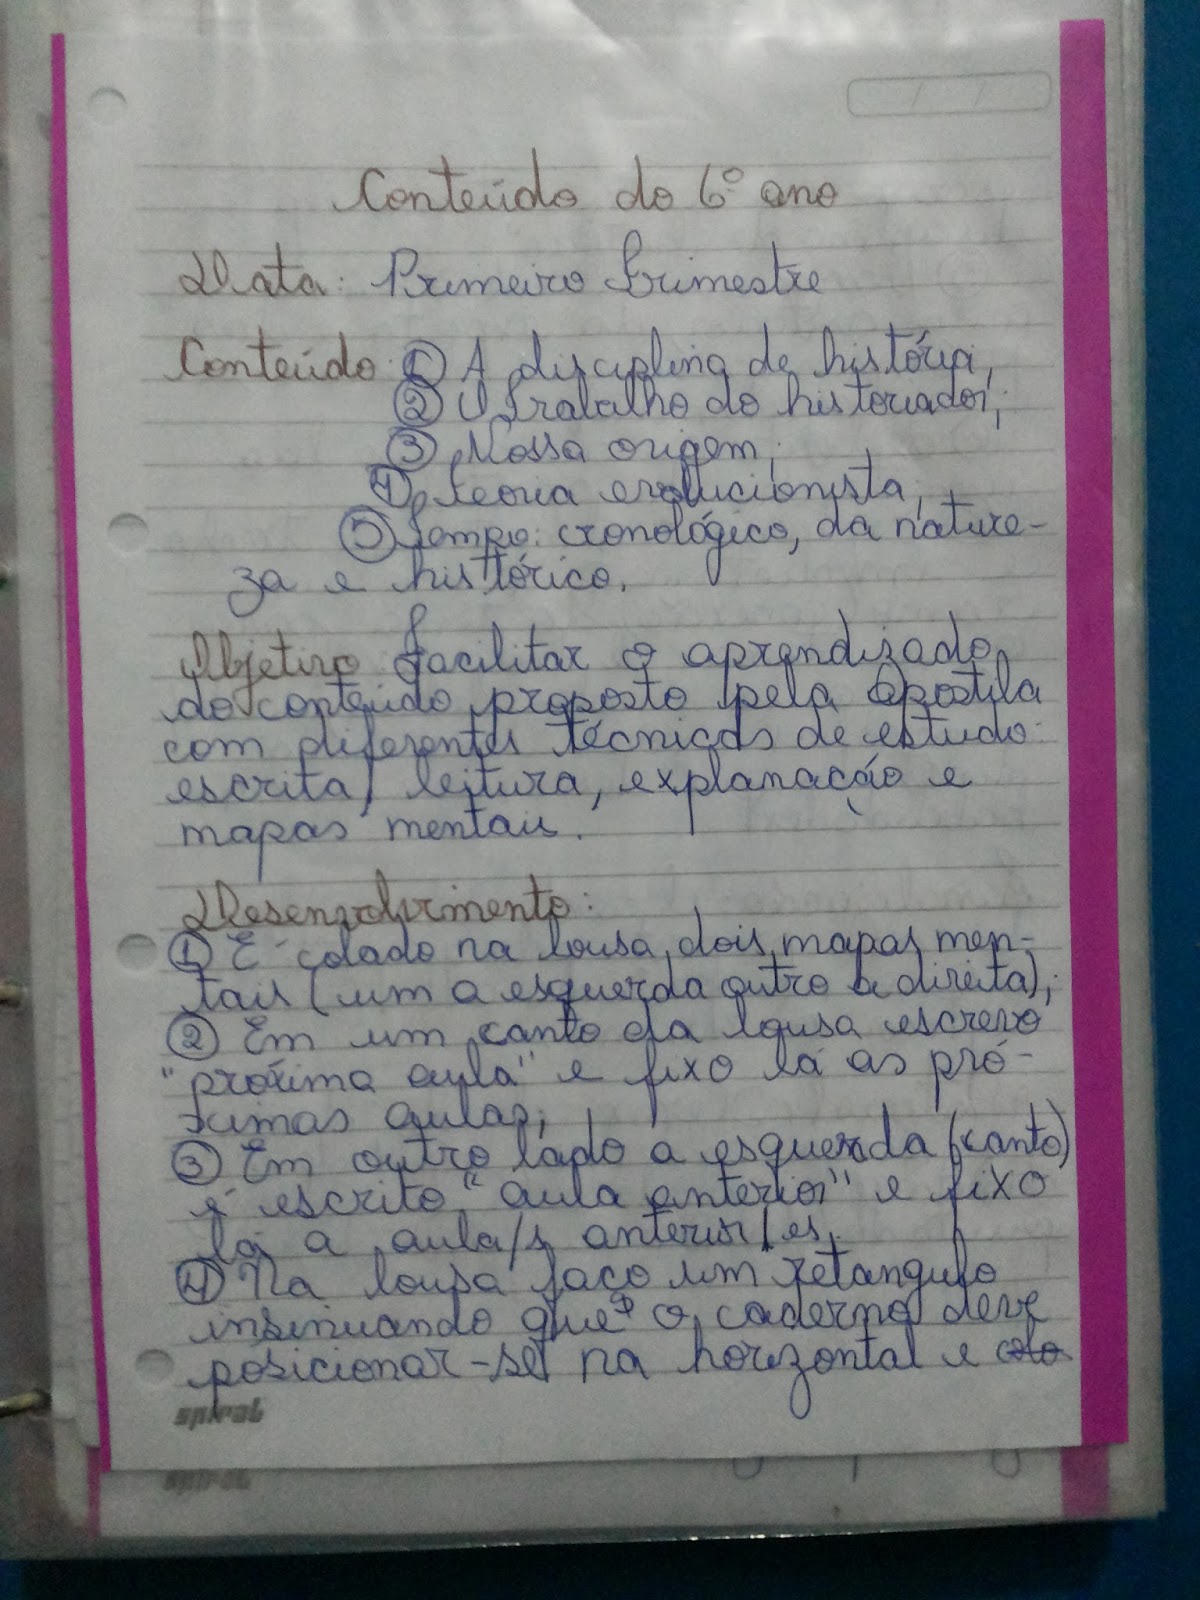 Conteúdo do 6º ano
Data: Primeiro trimestre
Conteúdo: ① A disciplina de história,
② O trabalho do historiador;
③ Nossa origem;
④ teoria evolucionista,
⑤ Tempo: cronológico, da nature-
za e histórico.
Objetivo: facilitar o aprendizado
do conteúdo proposto pela apostila
com diferentes técnicas de estudo:
escrita, leitura, explanação e
mapas mentais.
Desenvolvimento:
① É colado na lousa dois mapas men-
tais (um a esquerda outro a direita);
② Em um canto da lousa escrevo
"próxima aula" e fixo lá as pró-
ximas aulas;
③ Em outro lado a esquerda (canto)
é escrito "aula anterior" e fixo
lá a aula/s anterior/es.
④ Na lousa faço um retangulo
insinuando que o caderno deve
posicionar-se na horizontal e
spiral
spiral